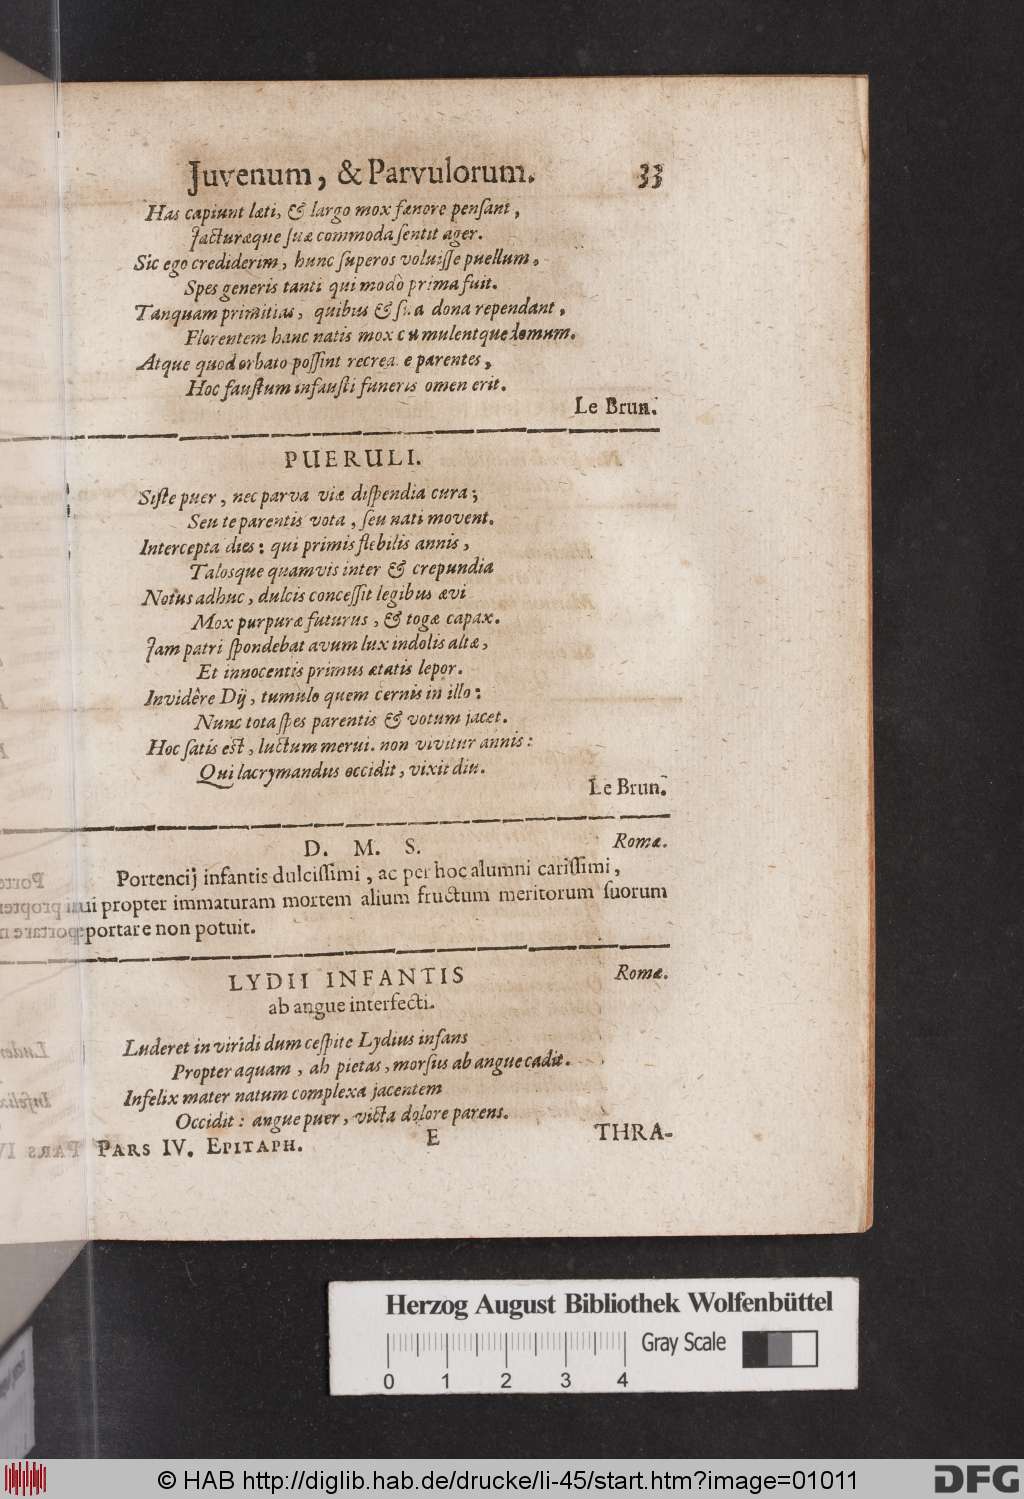 Juvenum, & Parvulorum. 33
Has capiunt læti, & largo mox fænore pensant,
Jacturæque suæ commoda sentit ager.
Sic ego crediderim, hunc superos voluisse puellum,
Spes generis tanti qui modò prima fuit.
Tanquam primitias, quibus & sua dona rependant,
Florentem hanc natis mox cumulentque domum.
Atque quod orbato possint recreare parentes,
Hoc faustum infausti funeris omen erit.
Le Brun.
PUERULI.
Siste puer, nec parva viæ dispendia cura;
Seu te parentis vota, seu nati movent.
Intercepta dies: qui primis flebilis annis,
Talosque quamvis inter & crepundia
Notus adhuc, dulcis concessit legibus ævi
Mox purpuræ futurus, & togæ capax.
Jam patri spondebat avum lux indolis altæ,
Et innocentis primus ætatis lepor.
Invidêre Dij, tumulo quem cernis in illo:
Nunc tota spes parentis & votum jacet.
Hoc satis est, luctum merui. non vivitur annis:
Qui lacrymandus occidit, vixit diu.
Le Brun.
D. M. S. Romæ.
Portencij infantis dulcissimi, ac per hoc alumni carissimi,
ui propter immaturam mortem alium fructum meritorum suorum
portare non potuit.
LYDII INFANTIS Romæ.
ab angue interfecti.
Luderet in viridi dum cespite Lydius infans
Propter aquam, ah pietas, morsus ab angue cadit.
Infelix mater natum complexa jacentem
Occidit: angue puer, victa dolore parens.
PARS IV. EPITAPH. E THRA-
Herzog August Bibliothek Wolfenbüttel
Gray Scale
0 1 2 3 4
© HAB http://diglib.hab.de/drucke/li-45/start.htm?image=01011
DFG